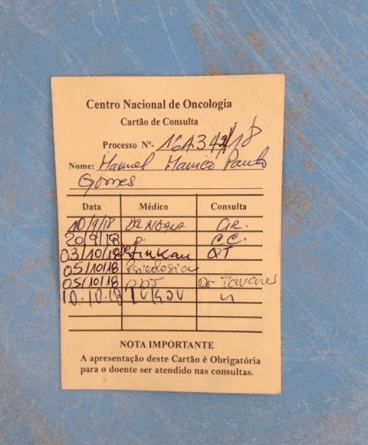 Centro Nacional de Oncologia
Cartão de Consulta
Processo Nº-
Nome: Manuel Manico Paulo
Gomes
Data Médico Consulta
10/9/18
20/9/18 C.C.
03/10/18 QT
05/10/18 Psicologia
05/10/18 Dr Tavares
10.10.18
NOTA IMPORTANTE
A apresentação deste Cartão é Obrigatória
para o doente ser atendido nas consultas.